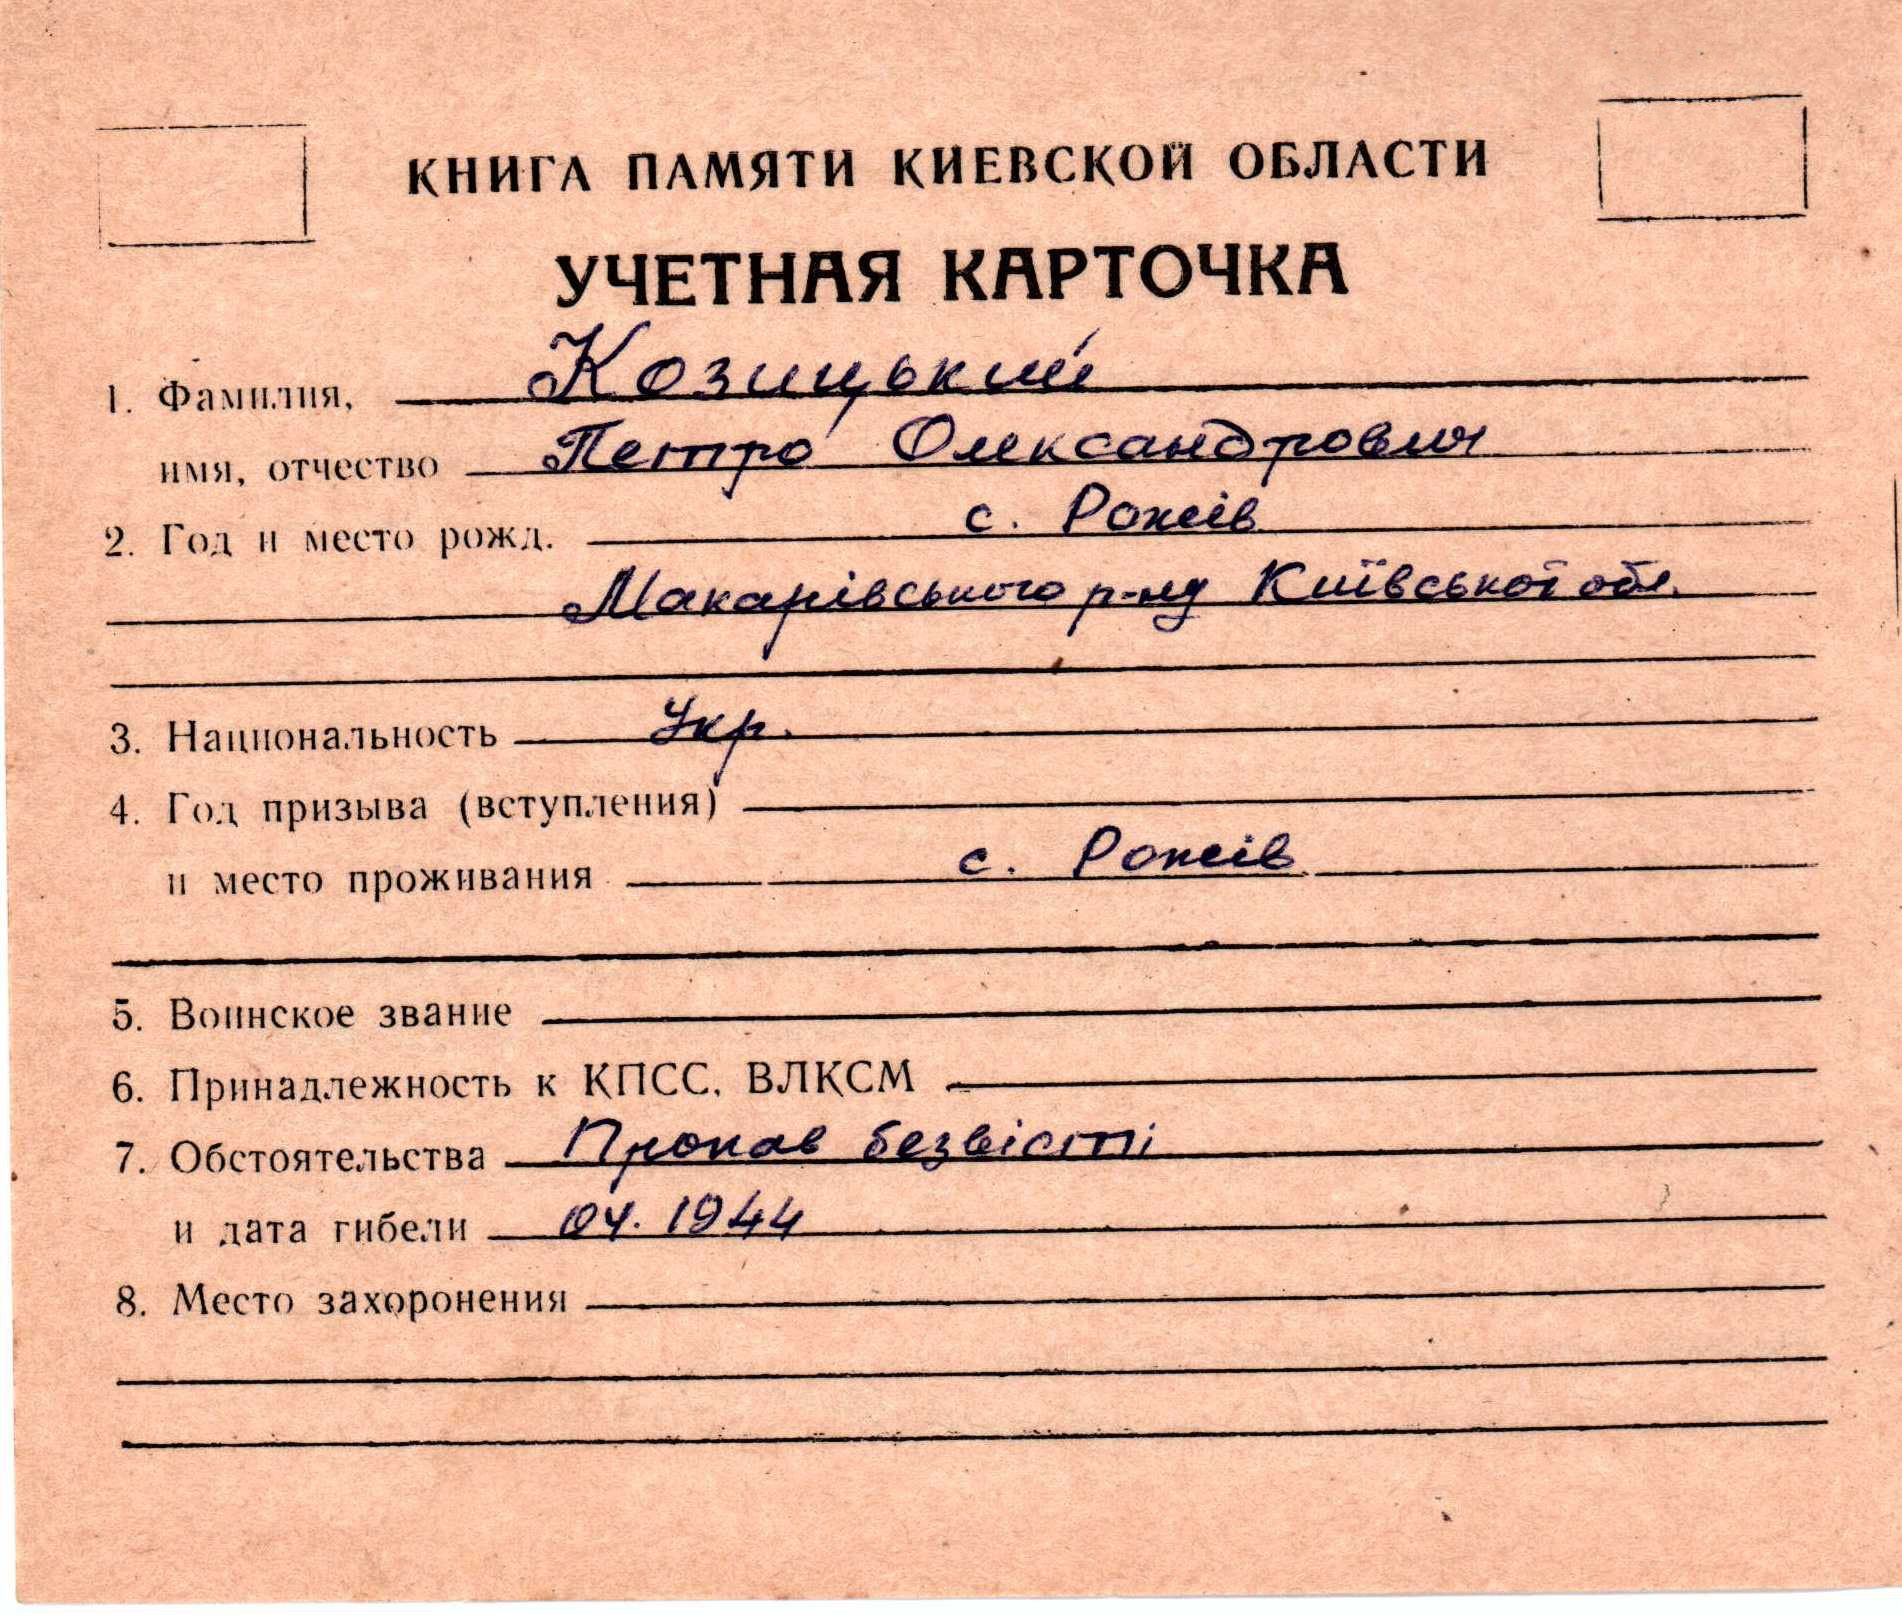 КНИГА ПАМЯТИ КИЕВСКОЙ ОБЛАСТИ
УЧЕТНАЯ КАРТОЧКА
1. Фамилия, Козицький
имя, отчество Петро Олександрович
2. Год и место рожд. с. Рожів
Макарівського р-ну Київської обл.
3. Национальность Укр.
4. Год призыва (вступления)
и место проживания с. Рожів
5. Воинское звание
6. Принадлежность к КПСС, ВЛКСМ
7. Обстоятельства Пропав безвісті
и дата гибели 04. 1944
8. Место захоронения